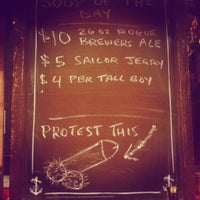 SOUP OF THE
DAY
$10 26 OZ ROGUE
BREWERS ALE
$5 SAILOR JERRY
$4 PER TALL BOY
PROTEST THIS